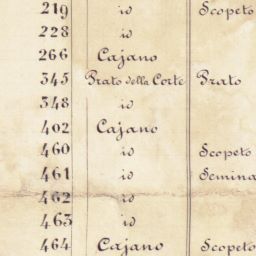 219 id Scopeto
228 id
266 Cajano
345 Prato della Corte Prato
348 id
402 Cajano
460 id Scopeto
461 id Semina
462 id
463 id
464 Cajano Scopeto